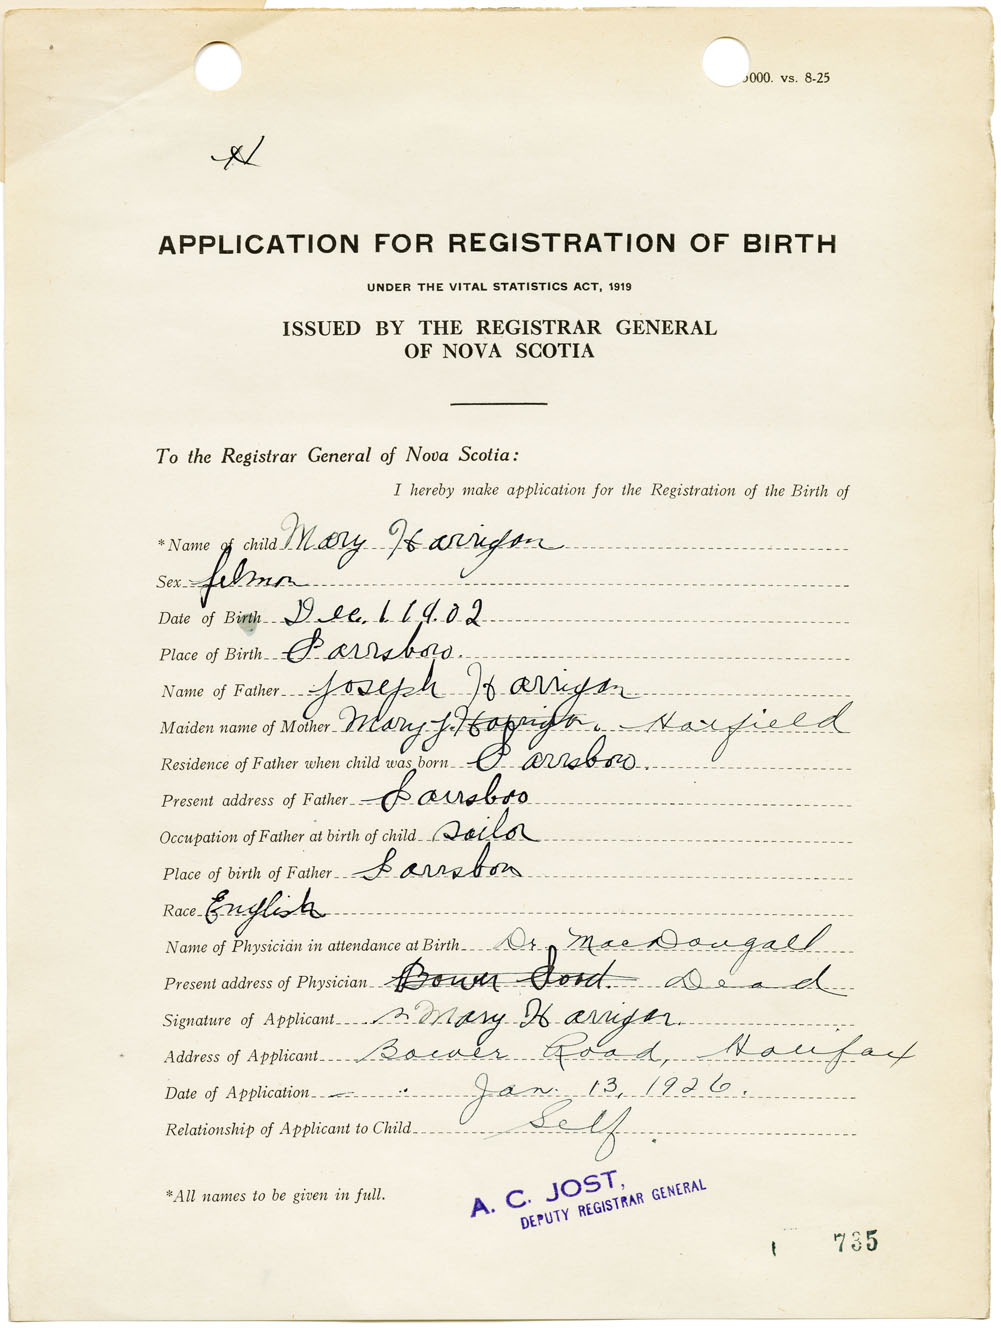 000. vs. 8-25
H
APPLICATION FOR REGISTRATION OF BIRTH
UNDER THE VITAL STATISTICS ACT, 1919
ISSUED BY THE REGISTRAR GENERAL
OF NOVA SCOTIA
To the Registrar General of Nova Scotia:
I hereby make application for the Registration of the Birth of
*Name of child Mary Harrigan
Sex felmon
Date of Birth Dec. 1 1902
Place of Birth Parrsboro.
Name of Father Joseph Harrigan
Maiden name of Mother Mary J. Harrigan. Hatfield
Residence of Father when child was born Parrsboro.
Present address of Father Parrsboo
Occupation of Father at birth of child Sailor
Place of birth of Father Parrsboro
Race English
Name of Physician in attendance at Birth Dr. MacDougall
Present address of Physician Bower Road. Dead
Signature of Applicant Mary Harrigan.
Address of Applicant Bower Road, Halifax
Date of Application Jan. 13, 1926.
Relationship of Applicant to Child Self.
*All names to be given in full.
A. C. JOST,
DEPUTY REGISTRAR GENERAL
735